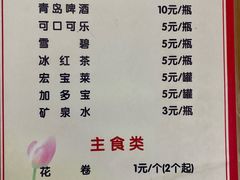 青岛啤酒 10元/瓶
可口可乐 5元/瓶
雪碧 5元/瓶
冰红茶 5元/瓶
宏宝莱 5元/罐
加多宝 5元/罐
矿泉水 3元/瓶
主食类
花卷 1元/个(2个起)